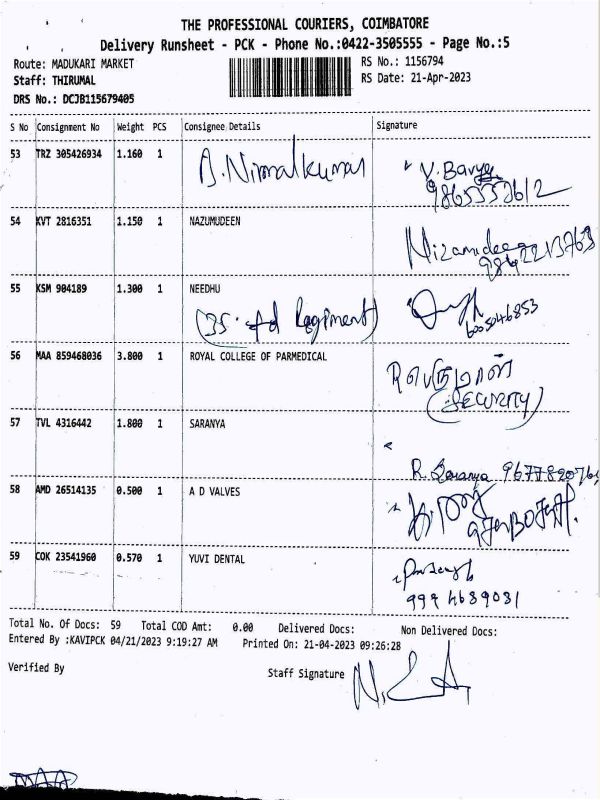 THE PROFESSIONAL COURIERS, COIMBATORE
Delivery Runsheet - PCK - Phone No.:0422-3505555 - Page No.:5
Route: MADUKARI MARKET RS No.: 1156794
Staff: THIRUMAL RS Date: 21-Apr-2023
DRS No.: DCJB115679405
S No Consignment No Weight PCS Consignee Details Signature
53 TRZ 305426934 1.160 1 A. Nirmalkumar V. Bavya
54 KVT 2816351 1.150 1 NAZUMUDEEN
Nizamudeen
55 KSM 904189 1.300 1 NEEDHU
Regiment) 6005046853
56 MAA 859468036 3.800 1 ROYAL COLLEGE OF PARMEDICAL
R பெருமாள்
(Security)
57 TVL 4316442 1.800 1 SARANYA
R. Saranya
58 AMD 26514135 0.500 1 A D VALVES
59 COK 23541960 0.570 1 YUVI DENTAL
9994689081
Total No. Of Docs: 59 Total COD Amt: 0.00 Delivered Docs: Non Delivered Docs:
Entered By :KAVIPCK 04/21/2023 9:19:27 AM Printed On: 21-04-2023 09:26:28
Verified By Staff Signature